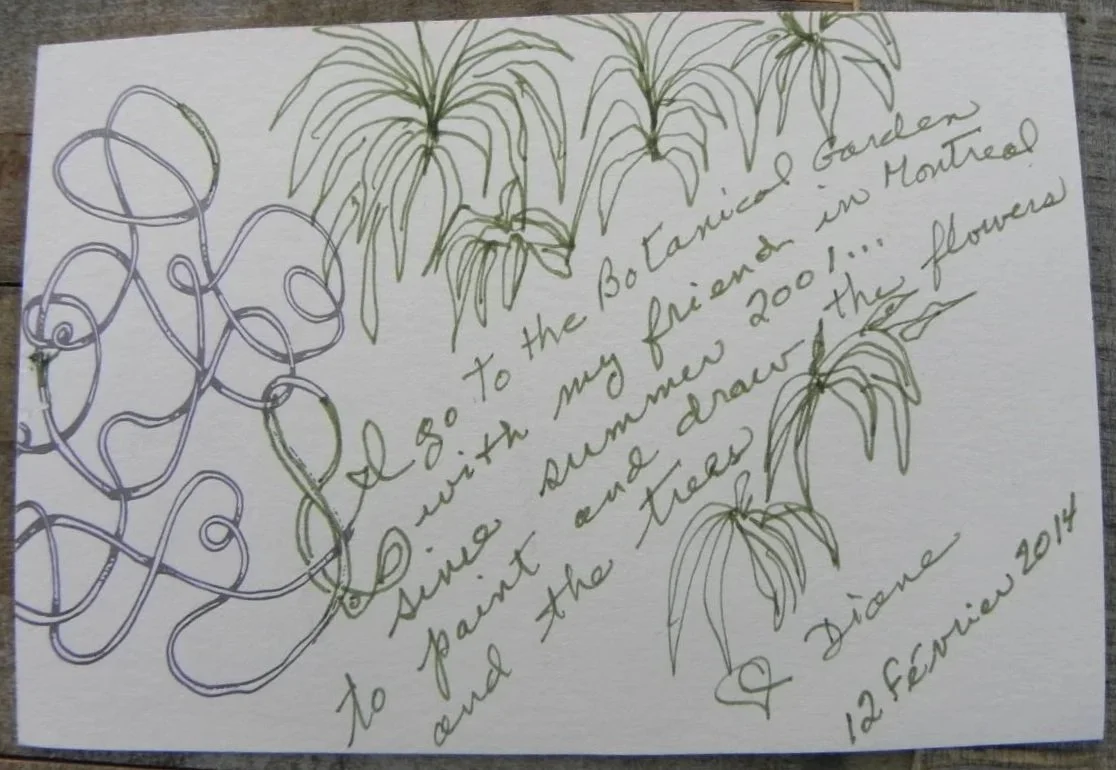 I go to the Botanical Garden
with my friend in Montreal
since summer 2001...
to paint and draw the flowers
and the trees
Diane
12 Février 2014